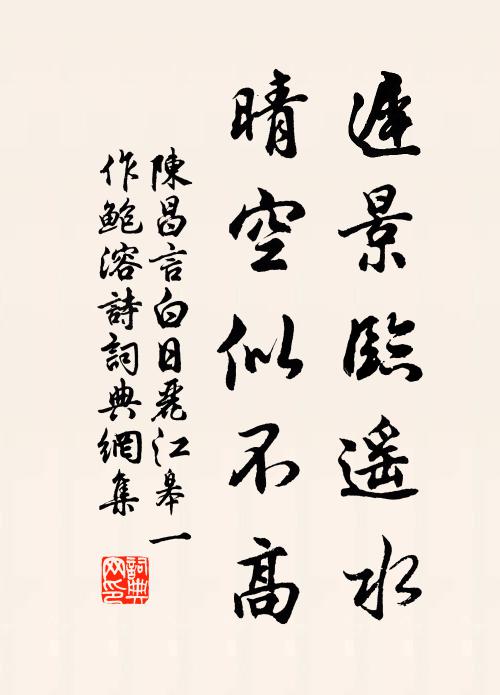 遲景臨遥水
晴空似不高
陳昌言白日麗江皋一
作鮑溶詩詞典網集
詞典网印